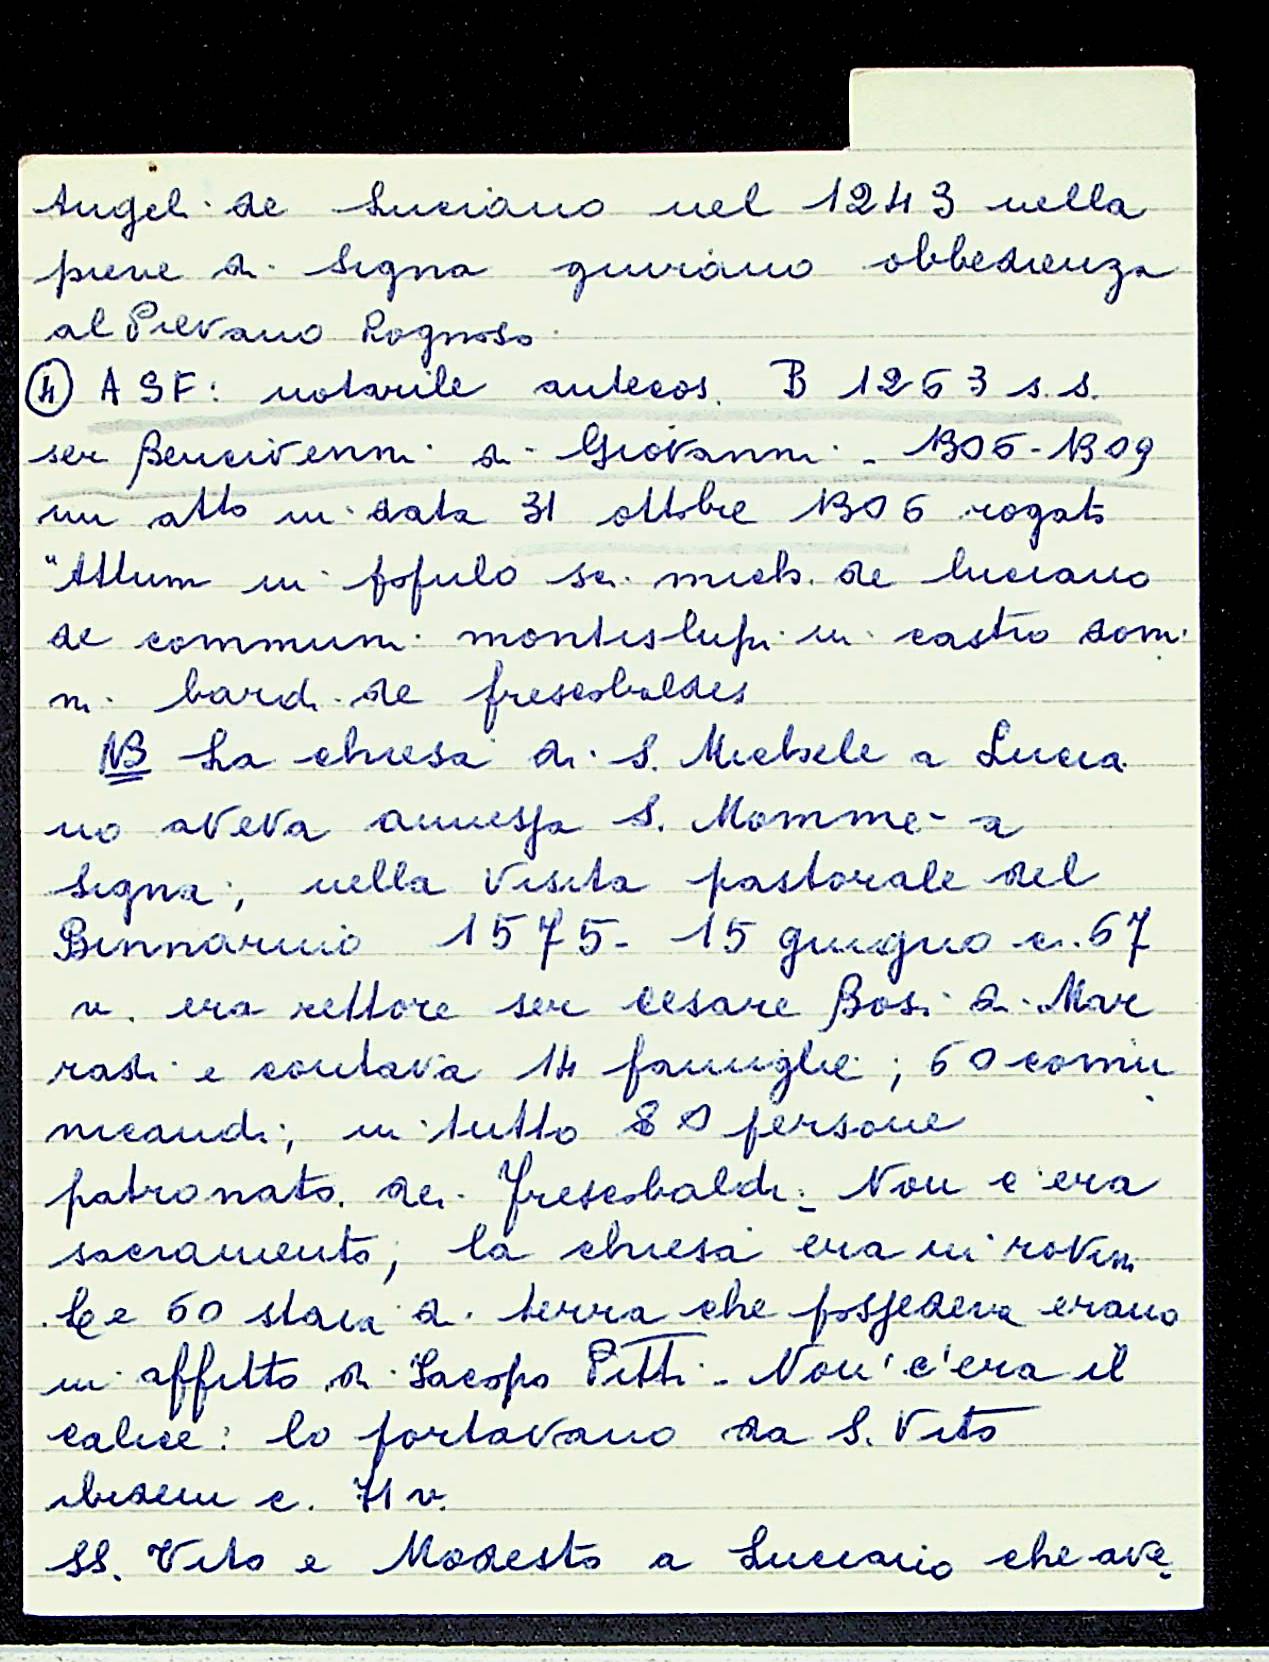 Angeli de Luciano nel 1243 nella
pieve di Signa giurano obbedienza
al Pievano Rognoso.
④ ASF: notarile antecos. B 1263 s.s.
ser Bencivenni di Giovanni - 1306-1309
un atto in data 31 ottobre 1306 rogato
"Attum in popolo sci. mich. de luciano
de communi montislupi in castro dom.
ni. bardi de frescobaldis
NB La chiesa di S. Michele a Lucia
no aveva annessa S. Mommè a
Signa; nella visita pastorale del
Binnarino 1575 - 15 giugno c. 67
v. era rettore ser Cesare Bosi di Mar
radi e contava 14 famiglie; 60 comu
nicandi; in tutto 80 persone
patronato. dei Frescobaldi. Non c'era
sacramento; la chiesa era in rovina
Le 60 staia di terra che possedeva erano
in affitto di Iacopo Pitti - Non c'era il
calice: lo portavano da S. Vito
ibidem c. 71 v.
SS. Vito e Modesto a Luciano che ave